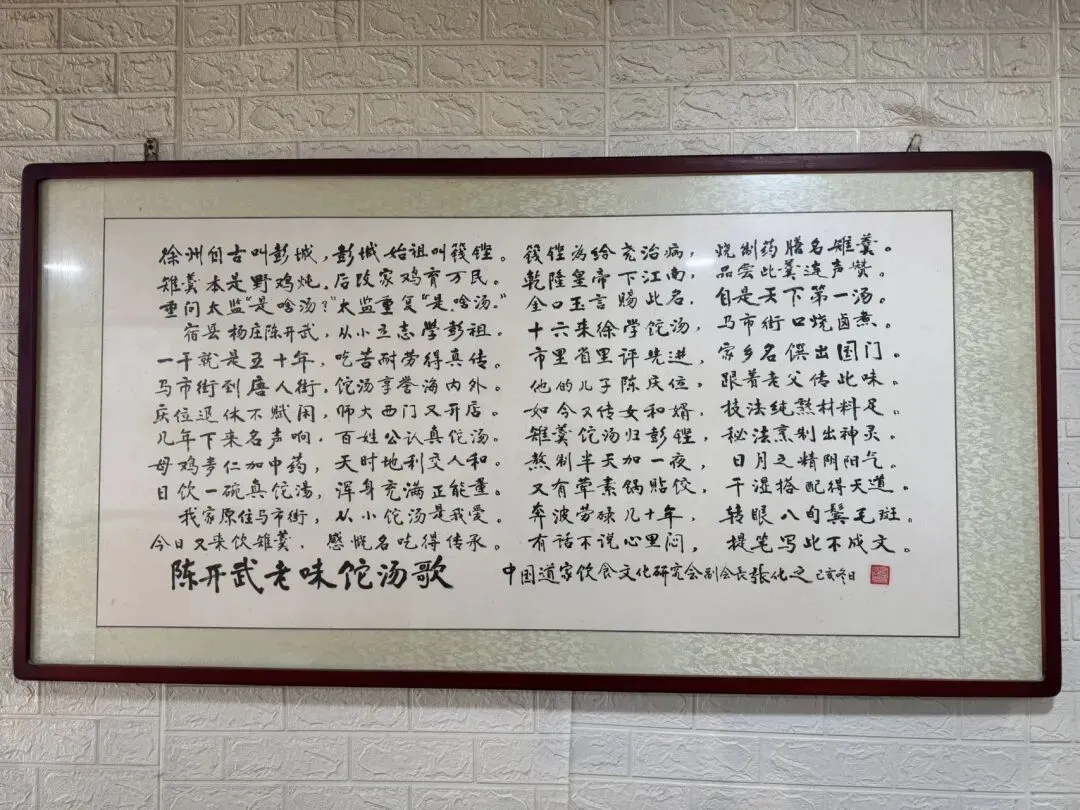 徐州自古叫彭城，彭城始祖叫篯铿。篯铿为给尧治病，烧制药膳名雉羹。
雉羹本是野鸡炖。后改家鸡育万民。乾隆皇帝下江南，品尝此羹连声赞。
重问太监“是啥汤？”太监重复“是啥汤。”金口玉言赐此名，自是天下第一汤。
宿县杨庄陈开武，从小立志学彭祖。十六来徐学饣它汤，马市街口烧卤煮。
一干就是五十年，吃苦耐劳得真传。市里省里评先进，家乡名馔出国门。
马市街到唐人街，饣它汤享誉海内外。他的儿子陈庆位，跟着老父传此味。
庆位退休不赋闲，师大西门又开店。如今又传女和婿，技法纯熟材料足。
几年下来名声响，百姓公认真饣它汤。雉羹饣它汤归彭铿，秘法烹制出神灵。
母鸡麦仁加中药，天时地利交人和。熬制半天加一夜，日月之精阴阳气。
日饮一碗真饣它汤，浑身充满正能量。又有荤素锅贴饺，干湿搭配得天道。
我家原住马市街，从小饣它汤是我爱。奔波劳碌几十年，转眼八旬鬓毛斑。
今日又来饮雉羹，感慨名吃得传承。有话不说心里闷，提笔写此不成文。
陈开武老味饣它汤歌 中国道家饮食文化研究会副会长张化之己亥冬日